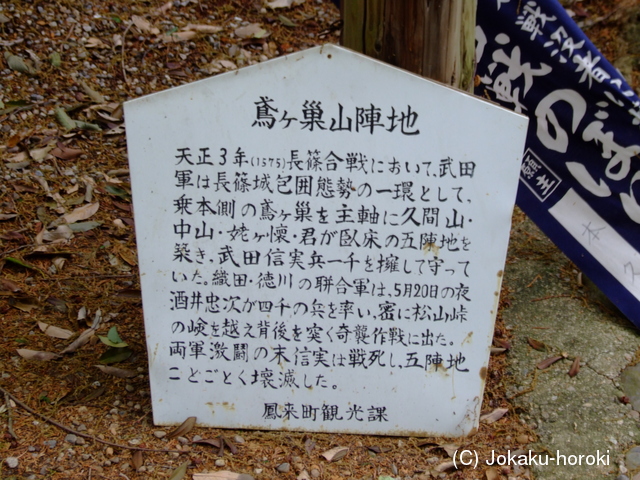 鳶ヶ巣山陣地
天正3年(1575)長篠合戦において、武田
軍は長篠城包囲態勢の一環として、
乗本側の鳶ヶ巣を主軸に久間山・
中山・姥ヶ懐・君が臥床の五陣地を
築き、武田信実兵一千を擁して守って
いた。織田・徳川の聨合軍は、5月20日の夜
酒井忠次が四千の兵を率い、密に松山峠
の嶮を越え背後を突く奇襲作戦に出た。
両軍激闘の末信実は戦死し、五陣地
ことごとく壊滅した。
鳳来町観光課
戦没者
戦のぼり
願主
(C) Jokaku-horoki